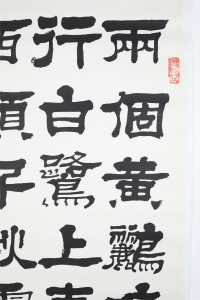 兩個黃鸝
行白鷺上青
西嶺千秋